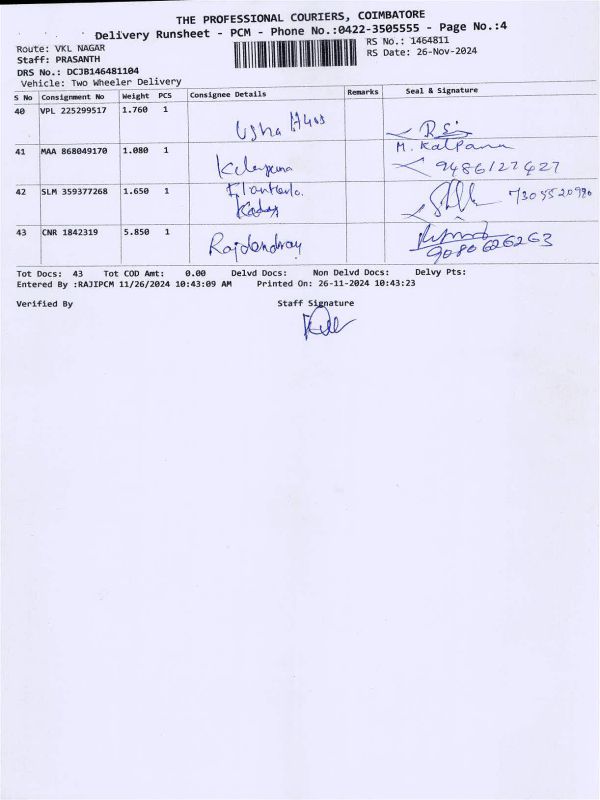 THE PROFESSIONAL COURIERS, COIMBATORE
Delivery Runsheet - PCM - Phone No.:0422-3505555 - Page No.:4
Route: VKL NAGAR
RS No.: 1464811
Staff: PRASANTH
RS Date: 26-Nov-2024
DRS No.: DCJB146481104
Vehicle: Two Wheeler Delivery
S No Consignment No Weight PCS Consignee Details Remarks Seal & Signature
40 VPL 225299517 1.760 1 Usha
41 MAA 868049170 1.080 1 M. Kalpana
9486127427
42 SLM 359377268 1.650 1
43 CNR 1842319 5.850 1
9080626263
Tot Docs: 43 Tot COD Amt: 0.00 Delvd Docs: Non Delvd Docs: Delvy Pts:
Entered By :RAJIPCM 11/26/2024 10:43:09 AM Printed On: 26-11-2024 10:43:23
Verified By Staff Signature